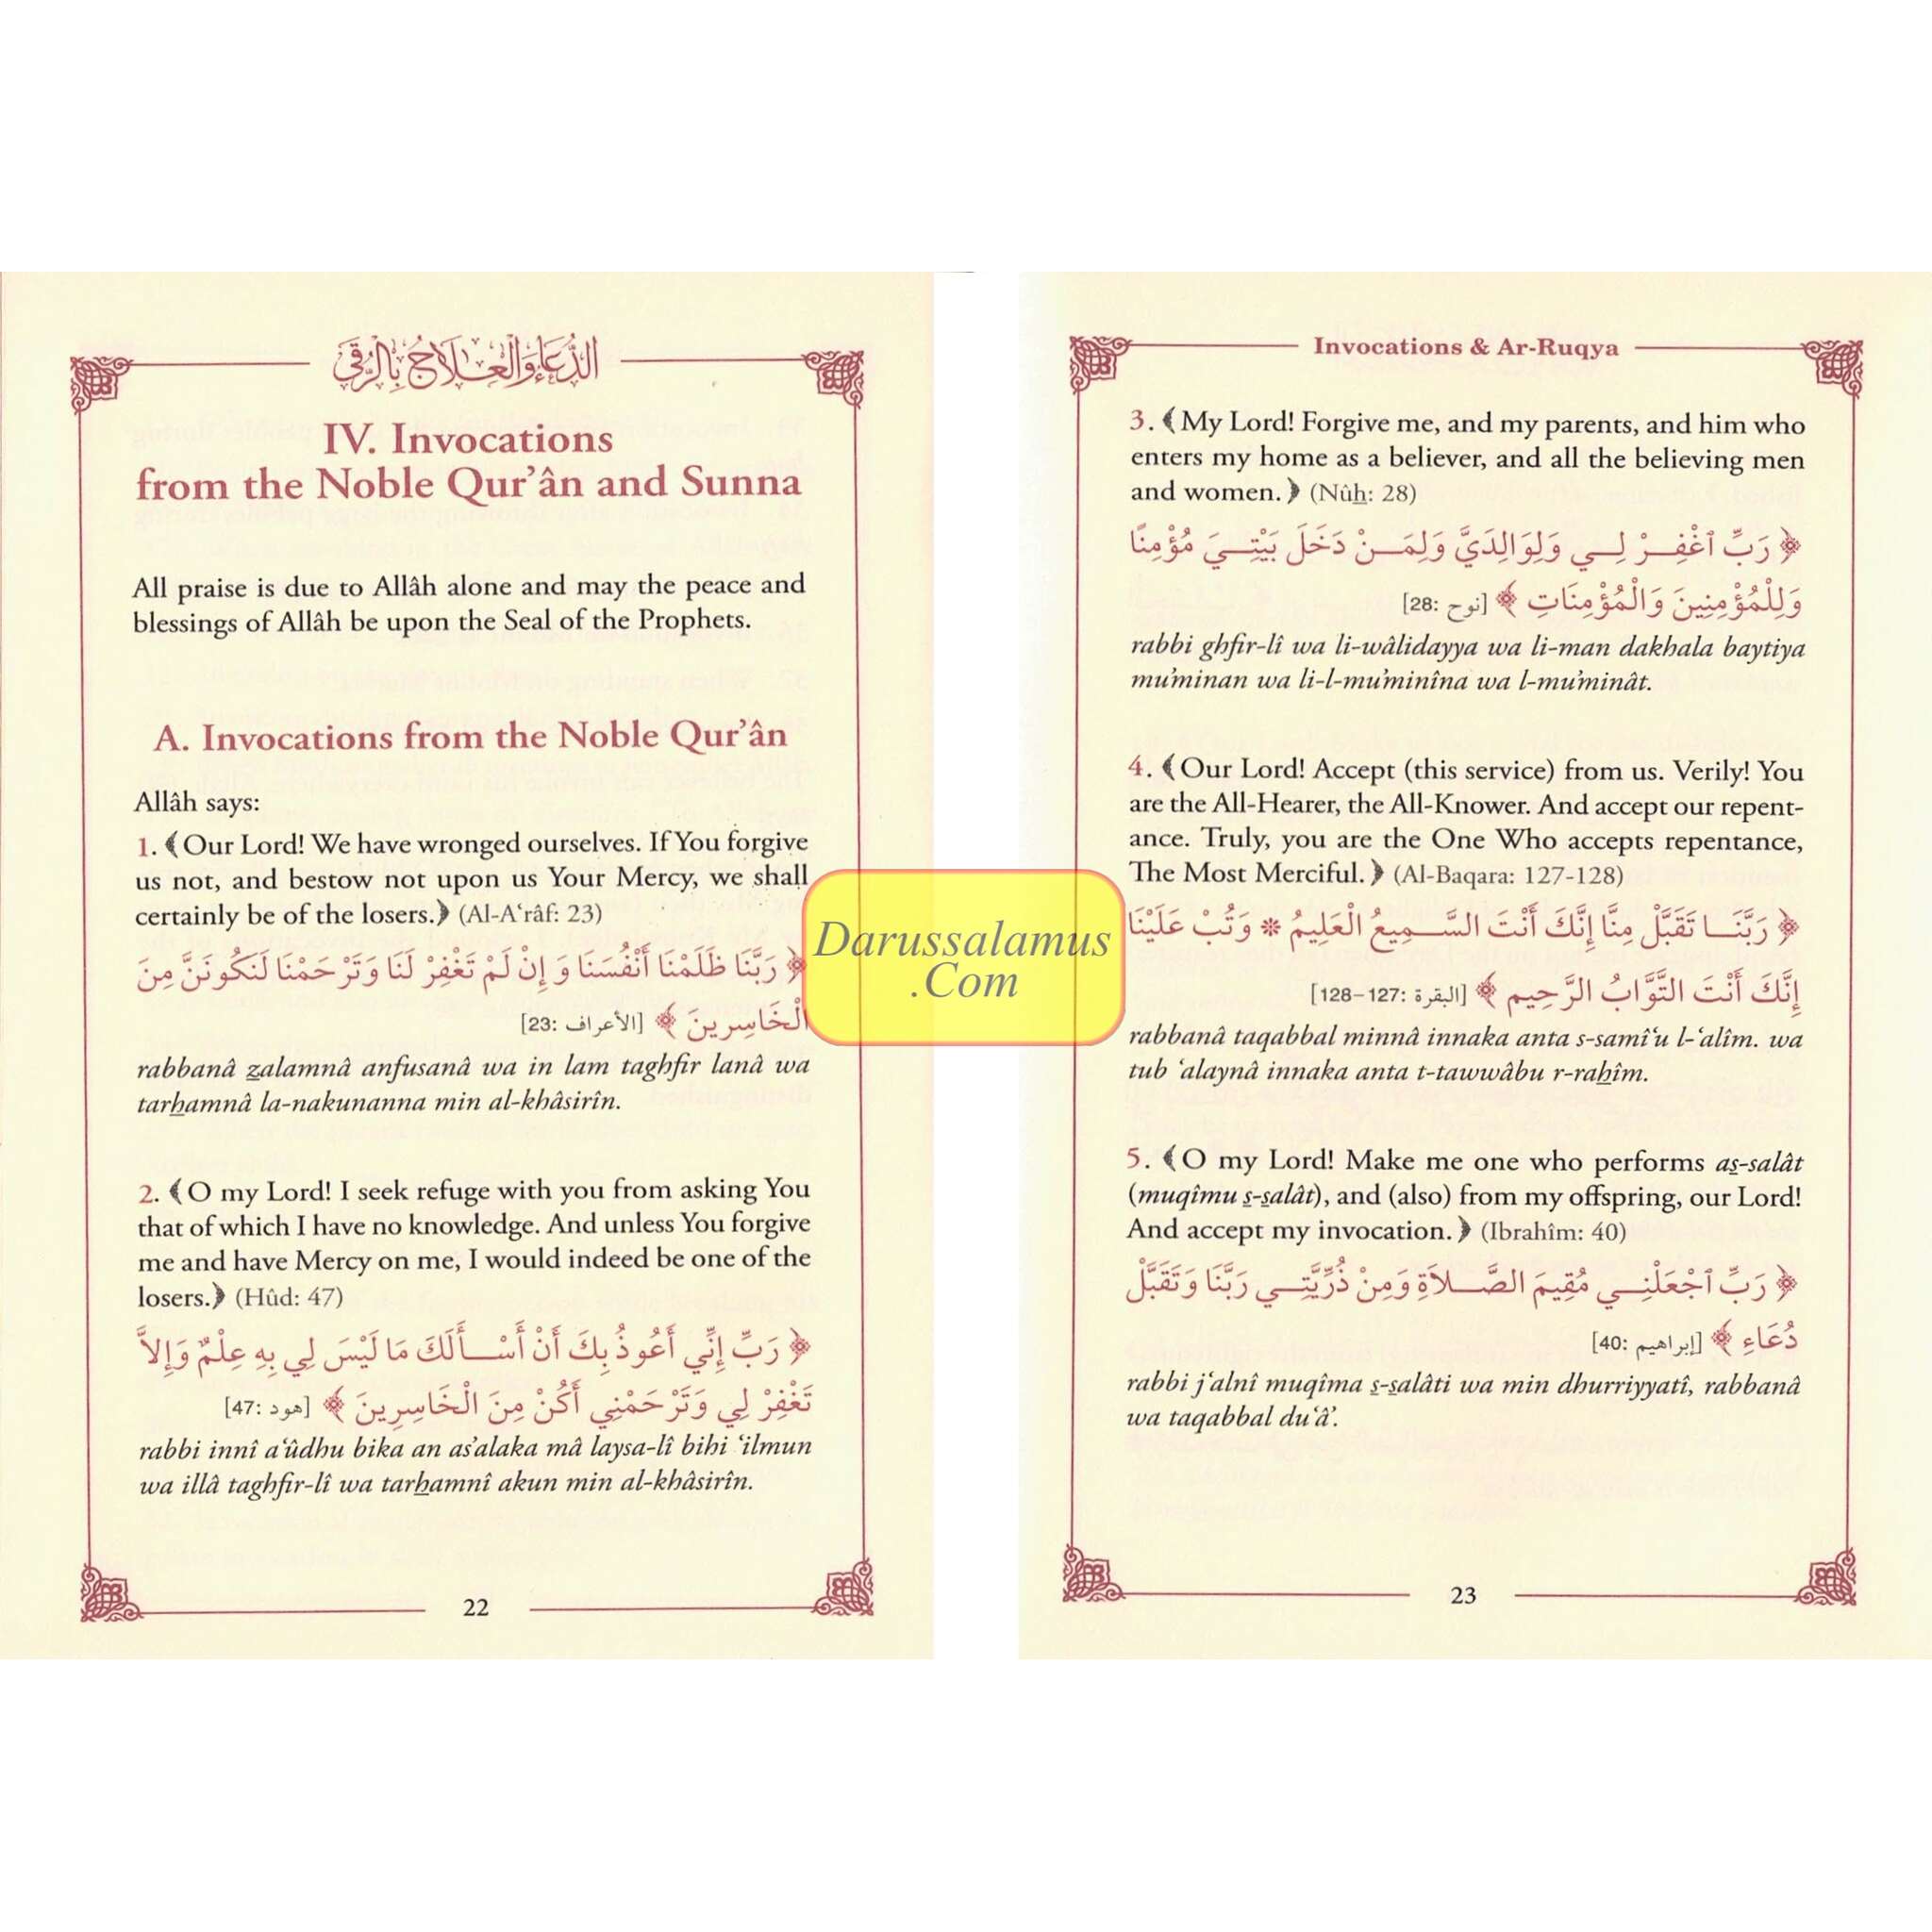 الدُّعَاءُ وَالْعِلَاجُ بِالرُّقَى
IV. Invocations
from the Noble Qur’ân and Sunna
All praise is due to Allâh alone and may the peace and
blessings of Allâh be upon the Seal of the Prophets.
A. Invocations from the Noble Qur’ân
Allâh says:
1. ﴾Our Lord! We have wronged ourselves. If You forgive
us not, and bestow not upon us Your Mercy, we shall
certainly be of the losers.﴿ (Al-A‘râf: 23)
﴿ رَبَّنَا ظَلَمْنَا أَنْفُسَنَا وَإِنْ لَمْ تَغْفِرْ لَنَا وَتَرْحَمْنَا لَنَكُونَنَّ مِنَ
الْخَاسِرِينَ ﴾ [الأعراف: 23]
rabbanâ z̲alamnâ anfusanâ wa in lam taghfir lanâ wa
tarẖamnâ la-nakunanna min al-khâsirîn.
2. ﴾O my Lord! I seek refuge with you from asking You
that of which I have no knowledge. And unless You forgive
me and have Mercy on me, I would indeed be one of the
losers.﴿ (Hûd: 47)
﴿ رَبِّ إِنِّي أَعُوذُ بِكَ أَنْ أَسْـــأَلَكَ مَا لَيْسَ لِي بِهِ عِلْمٌ وَإِلاَّ
تَغْفِرْ لِي وَتَرْحَمْنِي أَكُنْ مِنَ الْخَاسِرِينَ ﴾ [هود: 47]
rabbi innî a‘ûdhu bika an as’alaka mâ laysa-lî bihi ‘ilmun
wa illâ taghfir-lî wa tarẖamnî akun min al-khâsirîn.
22
Darussalamus
.Com
Invocations & Ar-Ruqya
3. ﴾My Lord! Forgive me, and my parents, and him who
enters my home as a believer, and all the believing men
and women.﴿ (Nûẖ: 28)
﴿ رَبِّ ٱغْفِـــرْ لِـــي وَلِوَالِدَيَّ وَلِمَـــنْ دَخَلَ بَيْتِـــيَ مُؤْمِنًا
وَلِلْمُؤْمِنِينَ وَالْمُؤْمِنَاتِ ﴾ [نوح: 28]
rabbi ghfir-lî wa li-wâlidayya wa li-man dakhala baytiya
mu’minan wa li-l-mu’minîna wa l-mu’minât.
4. ﴾Our Lord! Accept (this service) from us. Verily! You
are the All-Hearer, the All-Knower. And accept our repent-
ance. Truly, you are the One Who accepts repentance,
The Most Merciful.﴿ (Al-Baqara: 127-128)
﴿ رَبَّنَـــا تَقَبَّلْ مِنَّا إِنَّكَ أَنْتَ السَّـــمِيعُ الْعَلِيمُ * وَتُبْ عَلَيْنَا
إِنَّكَ أَنْتَ التَّوَّابُ الرَّحِيم ﴾ [البقرة: 127-128]
rabbanâ taqabbal minnâ innaka anta s-samî‘u l-‘alîm. wa
tub ‘alaynâ innaka anta t-tawwâbu r-raẖîm.
5. ﴾O my Lord! Make me one who performs as̲-salât
(muqîmu s̲-s̲alât), and (also) from my offspring, our Lord!
And accept my invocation.﴿ (Ibrahîm: 40)
﴿ رَبِّ ٱجْعَلْنِـــي مُقِيمَ الصَّـــلاَةِ وَمِنْ ذُرِّيَّتِـــي رَبَّنَا وَتَقَبَّلْ
دُعَاءِ ﴾ [إبراهيم: 40]
rabbi j‘alnî muqîma s̲-s̲alâti wa min dhurriyyatî, rabbanâ
wa taqabbal du‘â’.
23